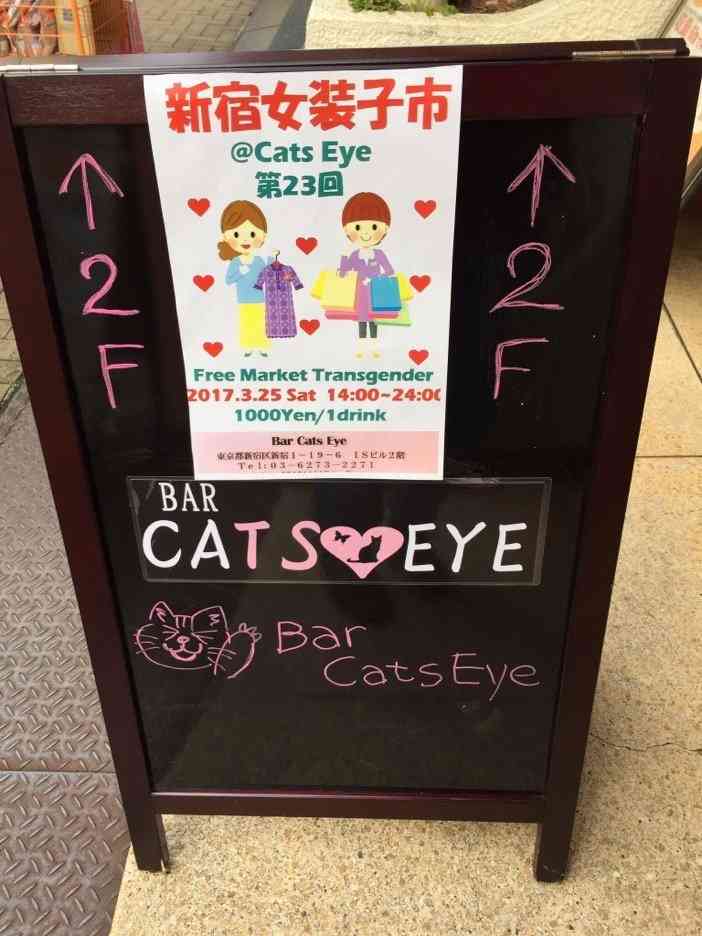 新宿女装子市
@Cats Eye
第23回
↑
2
F
↑
2
F
Free Market Transgender
2017.3.25 Sat 14:00~24:00
1000Yen/1drink
Bar Cats Eye
東京都新宿区新宿1-19-6 1Sビル2階
Tel:03-6273-2271
BAR
CATS EYE
Bar
Cats Eye